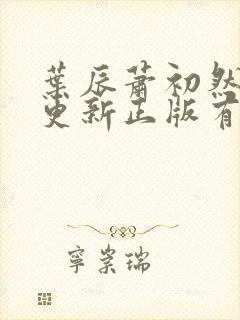 葉辰蕭初然
更新正版有
寧崇瑞